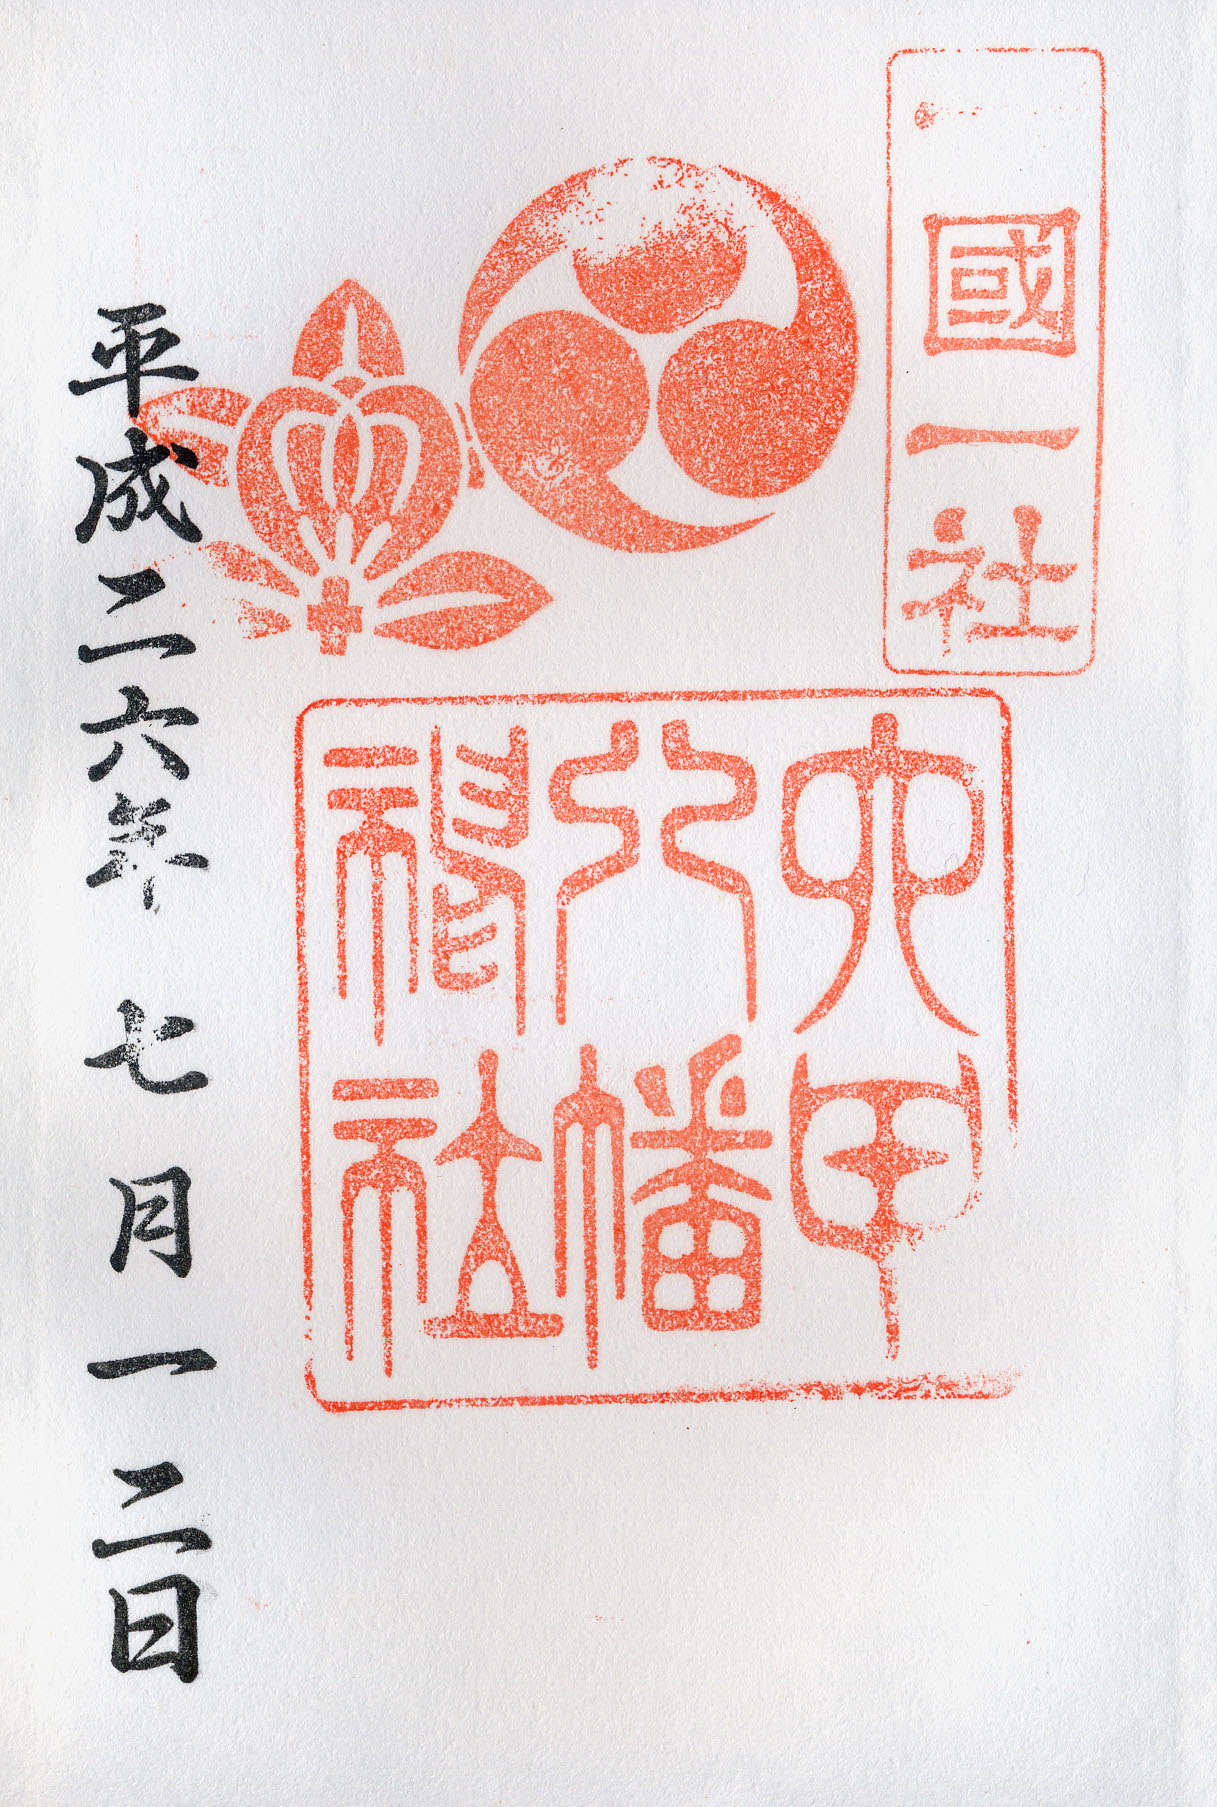 一國一社
六甲
八幡
神社
平成二六年 七月一二日